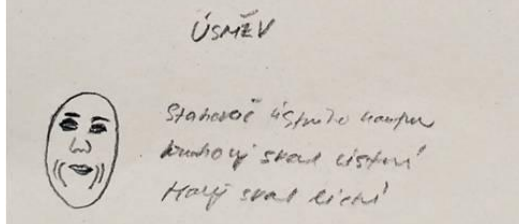 ÚSMĚV
Stahovač ústního koutku
kruhový sval ústní
Malý sval lícní